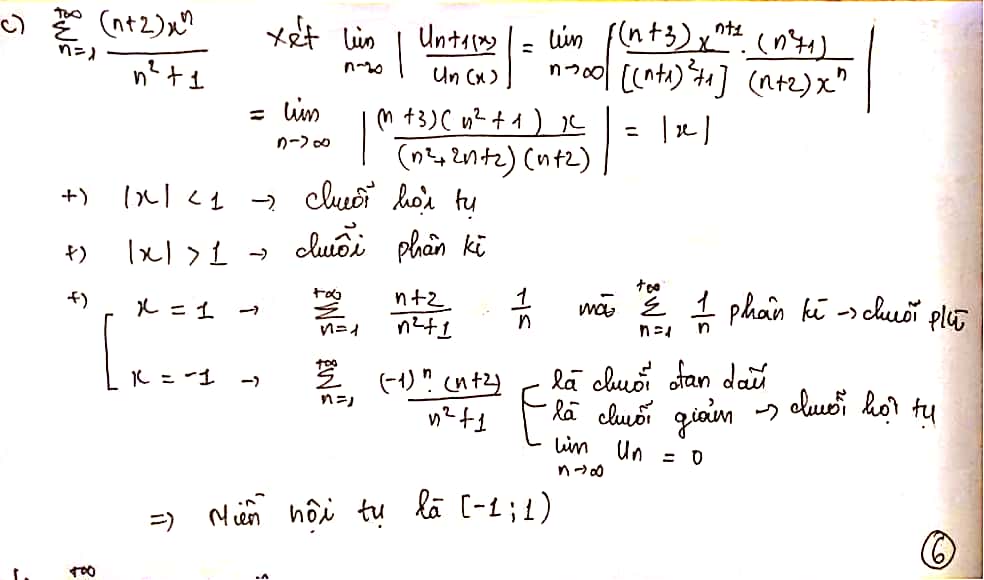 c) $\sum_{n=1}^{+\infty} \frac{(n+2)x^n}{n^2+1}$ xét $\lim_{n\to\infty} \left| \frac{U_{n+1}(x)}{U_n(x)} \right| = \lim_{n\to\infty} \left| \frac{(n+3)x^{n+1}}{[(n+1)^2+1]} \cdot \frac{(n^2+1)}{(n+2)x^n} \right|$
$= \lim_{n\to\infty} \left| \frac{(n+3)(n^2+1)x}{(n^2+2n+2)(n+2)} \right| = |x|$
+) |x| < 1 → chuỗi hội tụ
+) |x| > 1 → chuỗi phân kì
+) x = 1 → $\sum_{n=1}^{+\infty} \frac{n+2}{n^2+1}$ $\frac{1}{n}$ mà $\sum_{n=1}^{+\infty} \frac{1}{n}$ phân kì → chuỗi pkì
x = -1 → $\sum_{n=1}^{+\infty} \frac{(-1)^n (n+2)}{n^2+1}$ là chuỗi đan dấu
là chuỗi giảm → chuỗi hội tụ
$\lim_{n\to\infty} U_n = 0$
=> Miền hội tụ là [-1;1)
6
+∞